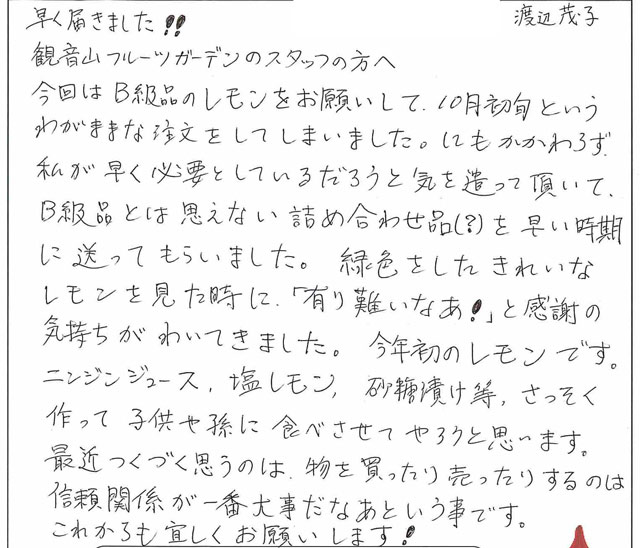 早く届きました!! 渡辺茂子
観音山フルーツガーデンのスタッフの方へ
今回はB級品のレモンをお願いして、10月初旬という
わがままな注文をしてしまいました。にもかかわらず、
私が早く必要としているだろうと気を遣って頂いて、
B級品とは思えない詰め合わせ品(?)を早い時期
に送ってもらいました。緑色をしたきれいな
レモンを見た時に、「有り難いなあ!」と感謝の
気持ちがわいてきました。今年初のレモンです。
ニンジンジュース、塩レモン、砂糖漬け等、さっそく
作って子供や孫に食べさせてやろうと思います。
最近つくづく思うのは、物を買ったり売ったりするのは
信頼関係が一番大事だなあという事です。
これからも宜しくお願いします!